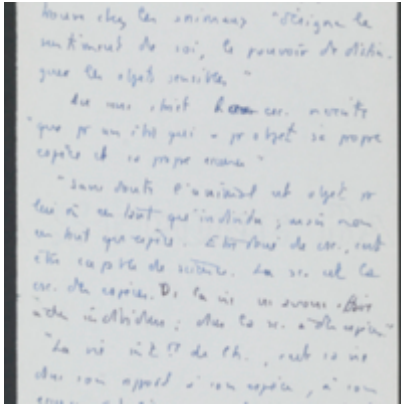 trouve chez les animaux "désigne le
sentiment de soi, le pouvoir de distin-
guer les objets sensibles"
Au sens strict csc. n'existe
"que pr un être qui a pr objet sa propre
espèce et sa propre essence"
"Sans doute l'animal est objet pr
lui en tant qu'individu ; mais non
en tant que espèce. Etre doué de csc. c'est
être capable de science. La sc. est la
csc. des espèces. Ds la vie ns avons
à des individus ; ds la sc. à des espèces"
"La vie de l'h., c'est sa vie
dans son rapport à son espèce, à son